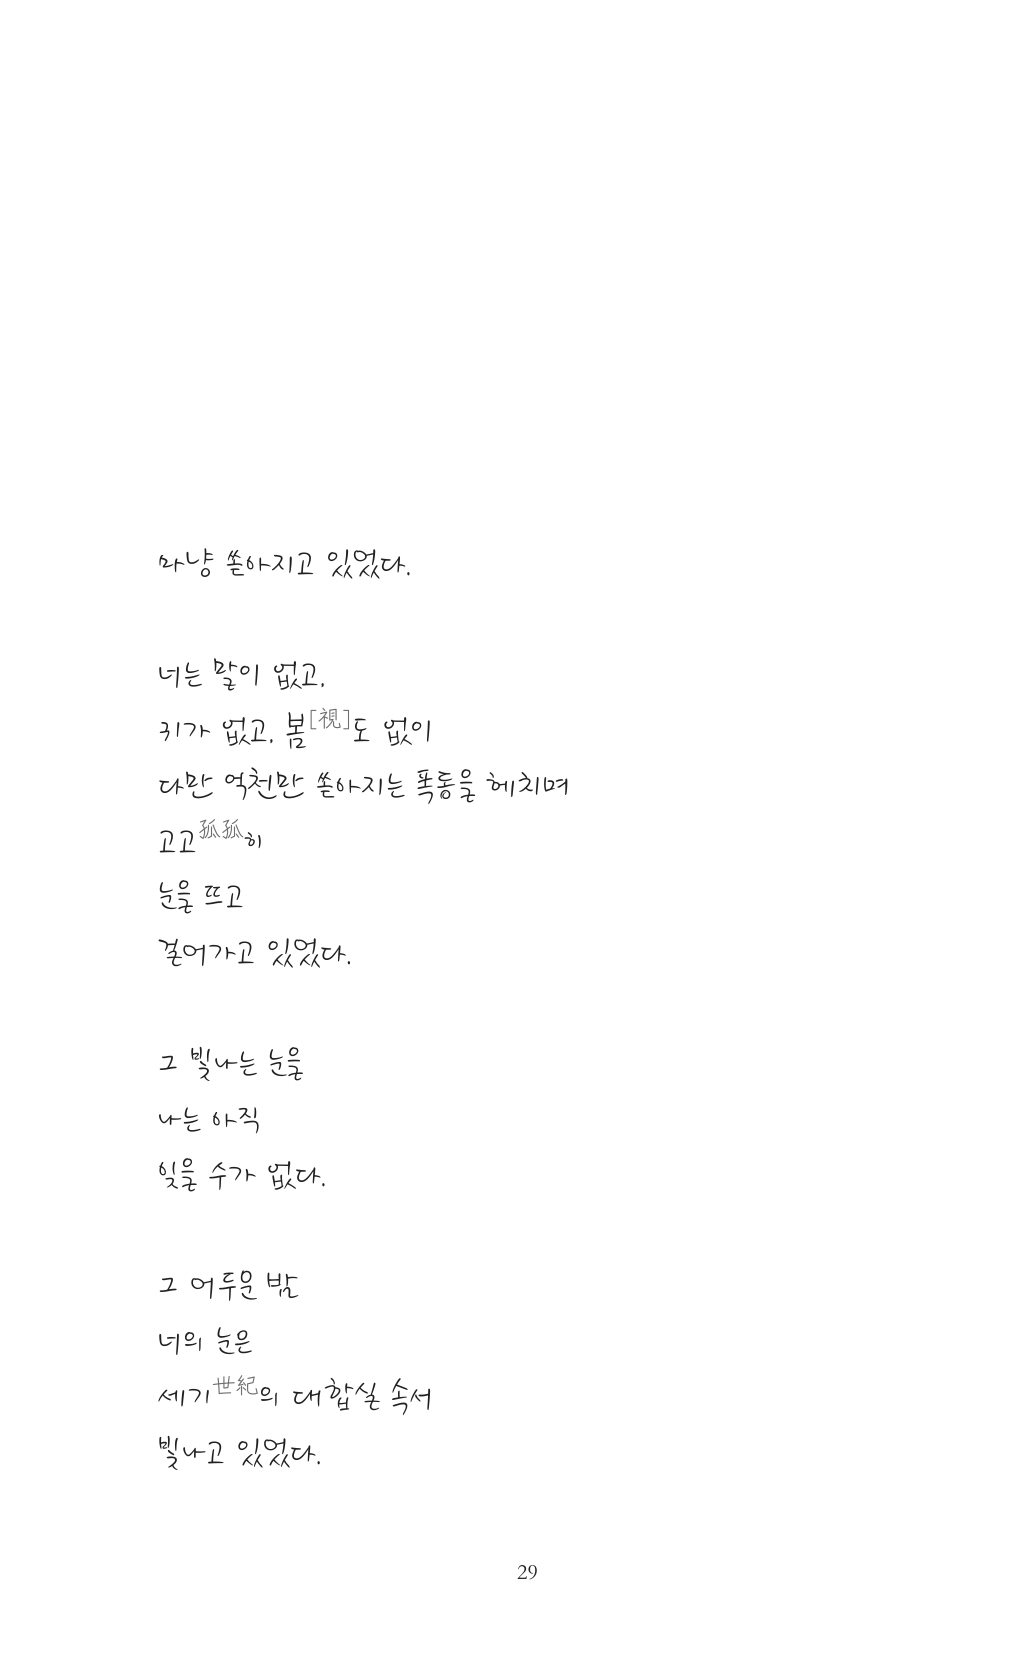 마냥 쏟아지고 있었다.
너는 말이 없고,
귀가 없고, 봄[視]도 없이
다만 억천만 쏟아지는 폭동을 헤치며
고고孤孤히
눈을 뜨고
걸어가고 있었다.
그 빛나는 눈을
나는 아직
잊을 수가 없다.
그 어두운 밤
너의 눈은
세기世紀의 대합실 속서
빛나고 있었다.
29